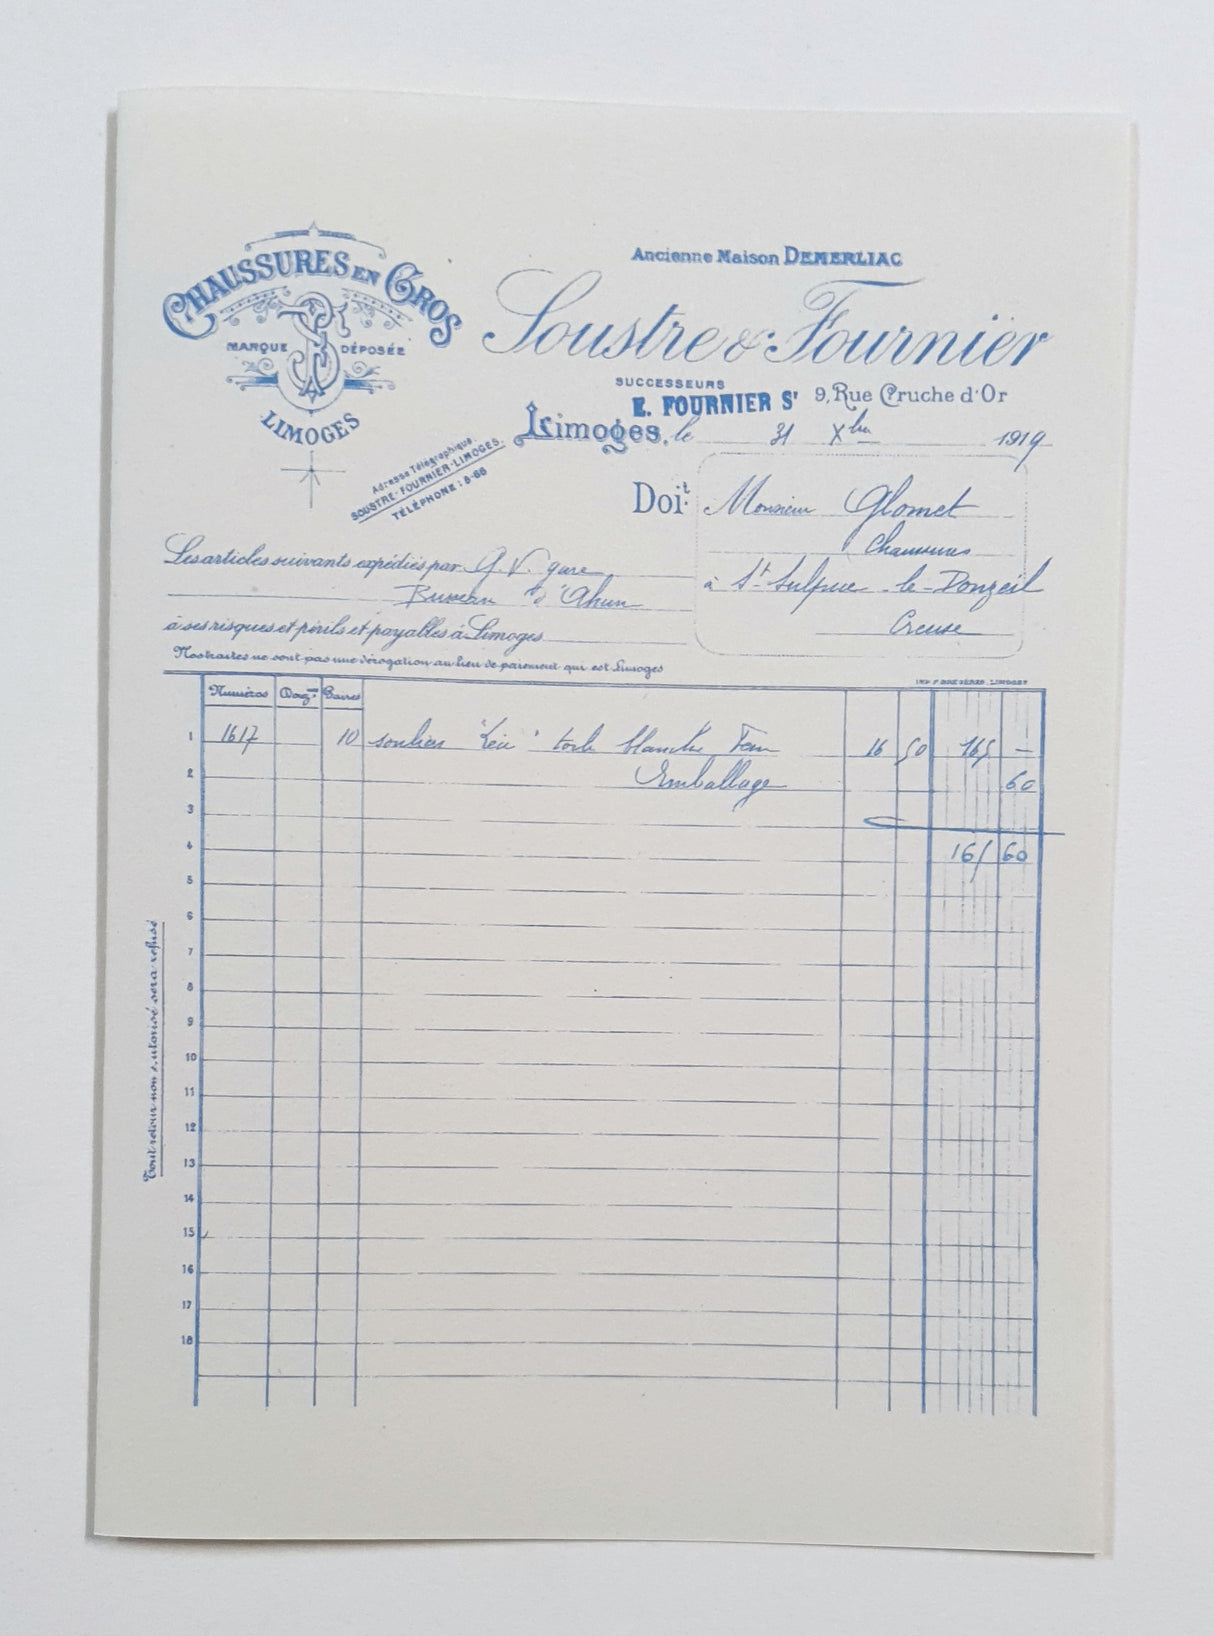 CHAUSSURES EN GROS
MARQUE DÉPOSÉE
LIMOGES
Adresse Télégraphique
SOUSTRE-FOURNIER-LIMOGES.
TÉLÉPHONE: 8-66
Ancienne Maison DEMERLIAC
Soustre & Fournier
SUCCESSEURS
E. FOURNIER Sr 9, Rue Cruche d'Or
Limoges, le 31 Xbre 1919
Doit Monsieur Glomet
Chaussures
à St Sulpice-le-Donzeil
Creuse
Les articles suivants expédiés par G.V. gare
Busseau d'Ahun
à ses risques et périls et payables à Limoges
Nos traites ne sont pas une dérogation au lieu de paiement qui est Limoges
Numéros Douz.nes Paires
1 1617 10 souliers toile blanche Fem 16 50 165 —
2 Emballage 60
3
4 165 60
5
6
7
8
9
10
11
12
13
14
15
16
17
18
Tout retour non autorisé sera refusé